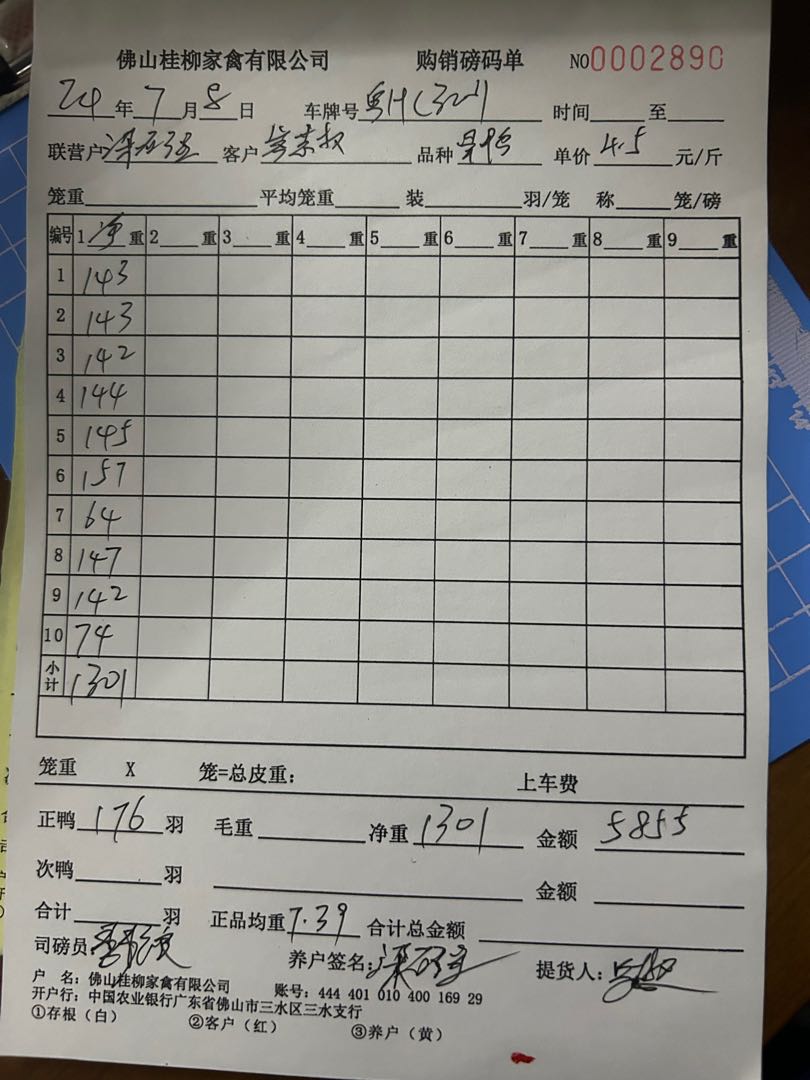 佛山桂柳家禽有限公司 购销磅码单 NO0002890
24年7月8日 车牌号粤H(321) 时间 至
联营户 客户 品种 单价4.5元/斤
笼重 平均笼重 装 羽/笼 称 笼/磅
编号 1净重 2 重 3 重 4 重 5 重 6 重 7 重 8 重 9 重
1 143
2 143
3 142
4 144
5 145
6 157
7 64
8 147
9 142
10 74
小计 1301
笼重 X 笼=总皮重: 上车费
正鸭176羽 毛重 净重1301 金额5855
次鸭 羽 金额
合计 羽 正品均重7.39 合计总金额
司磅员: 养户签名: 提货人:
户 名: 佛山桂柳家禽有限公司 账号: 444 401 010 400 169 29
开户行: 中国农业银行广东省佛山市三水区三水支行
①存根(白) ②客户(红) ③养户(黄)